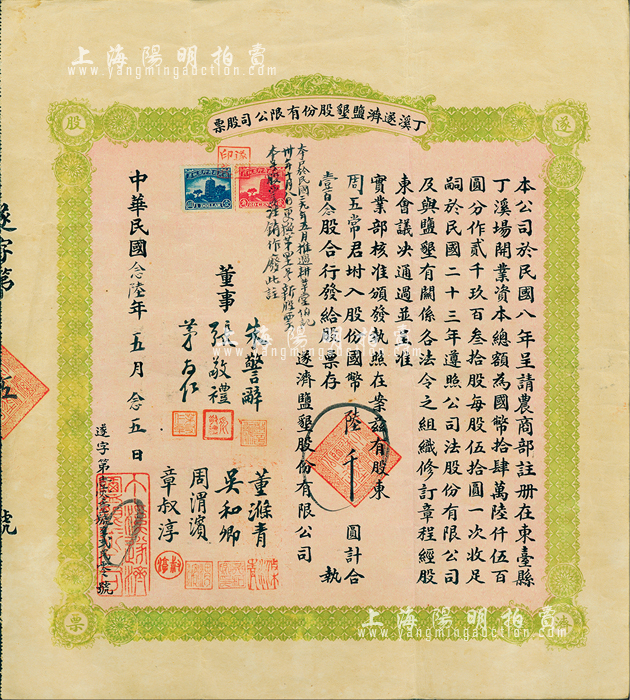 上海陽明拍賣
www.yangmingauction.com
丁溪遂濟鹽墾股份有限公司股票
遂
股
票
本公司於民國八年呈請農商部註冊在東臺縣
丁溪場開業資本總額為國幣拾肆萬陸仟伍百
圓分作貳千玖百叁拾股每股伍拾圓一次收足
嗣於民國二十三年遵照公司法股份有限公司
及與鹽墾有關係各法令之組織修訂章程經股
東會議決通過並呈准
實業部核准頒發執照在案茲有股東
周五常君坿入股份國幣 陸千 圓計合
壹百念股合行發給股票存 執
遂濟鹽墾股份有限公司
董事
朱警辭
張敬禮
董滌青
吳和卿
周渭濱
章叔淳
中華民國念陸年五月念五日
遂字第
號
1 DOLLAR
上海陽明拍賣
www.yangmingauction.com